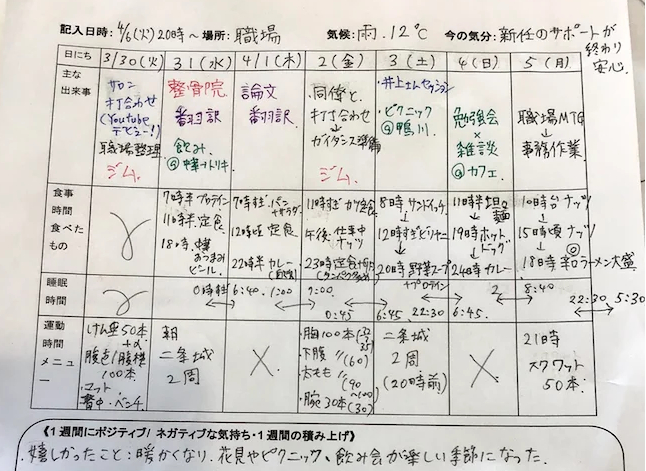 記入日時：4/6(火)20時～ 場所：職場 気候：雨．12℃ 今の気分：新任のサポートが
終わり
安心．
日にち 3/30(火) 31(水) 4/1(木) 2(金) 3(土) 4(日) 5(月)
主な
出来事
サロン
打合わせ
(Youtube
デビュー!)
職場整理
ジム
整骨院
翻訳
飲み
論文
翻訳
同僚と
打ち合わせ
↓
ガイダンス準備
ジム
井上さんセッション
ピクニック
@鴨川
勉強会
×
雑談
@カフェ
職場MTG
↓
事務作業
食事
時間
食べた
もの
7時半 プロテイン
11時半 定食
18時
おつまみ
ビール
7時すぎ パン
+サラダ
12時頃 定食
22時半 カレー
11時すぎ カツ定食
午後 仕事中
ナッツ
23時 定食
8時 サンドイッチ
↓
12時すぎ ビリヤニ
↓
20時 野菜スープ
+プロテイン
11時半 坦々
麺
19時 ホット
ドッグ
24時 カレー
10時台 ナッツ
↓
15時頃 ナッツ
↓
18時 辛ラーメン大盛
睡眠
時間
0時半 6:40 1:00 7:00 0:45 6:45 22:30 6:45 2 8:40 22:30 5:30
運動
時間
メニュ
ー
けん垂50本
+α
腹直/腹横
100本
背中・ベンチ
朝
二条城
2周
×
・胸100本
・下腹 〃(60)
・太もも 〃(90
～100)
・腕30本(30)
二条城
2周
(20時前)
×
21時
スクワット
50本
《1週間にポジティブ/ ネガティブな気持ち・1週間の積み上げ》
・嬉しかったこと：暖かくなり、花見やピクニック、飲み会が楽しい季節になった．